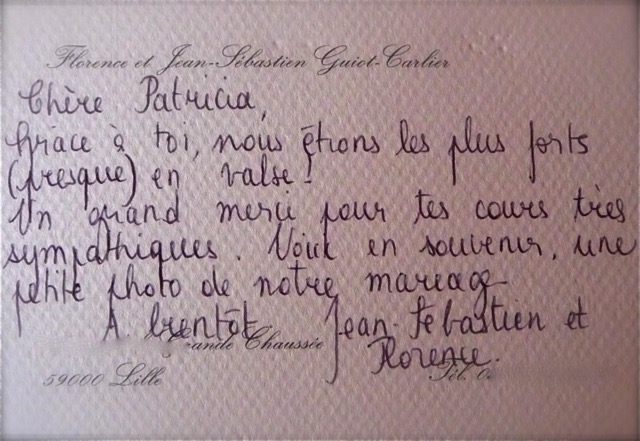 Florence et Jean-Sébastien Guiot-Carlier
Chère Patricia,
Grâce à toi, nous étions les plus forts
(presque) en valse !
Un grand merci pour tes cours très
sympathiques. Voici en souvenir, une
petite photo de notre mariage
A bientôt Jean-Sébastien et
Grande Chaussée
Florence.
59000 Lille Tél. 0